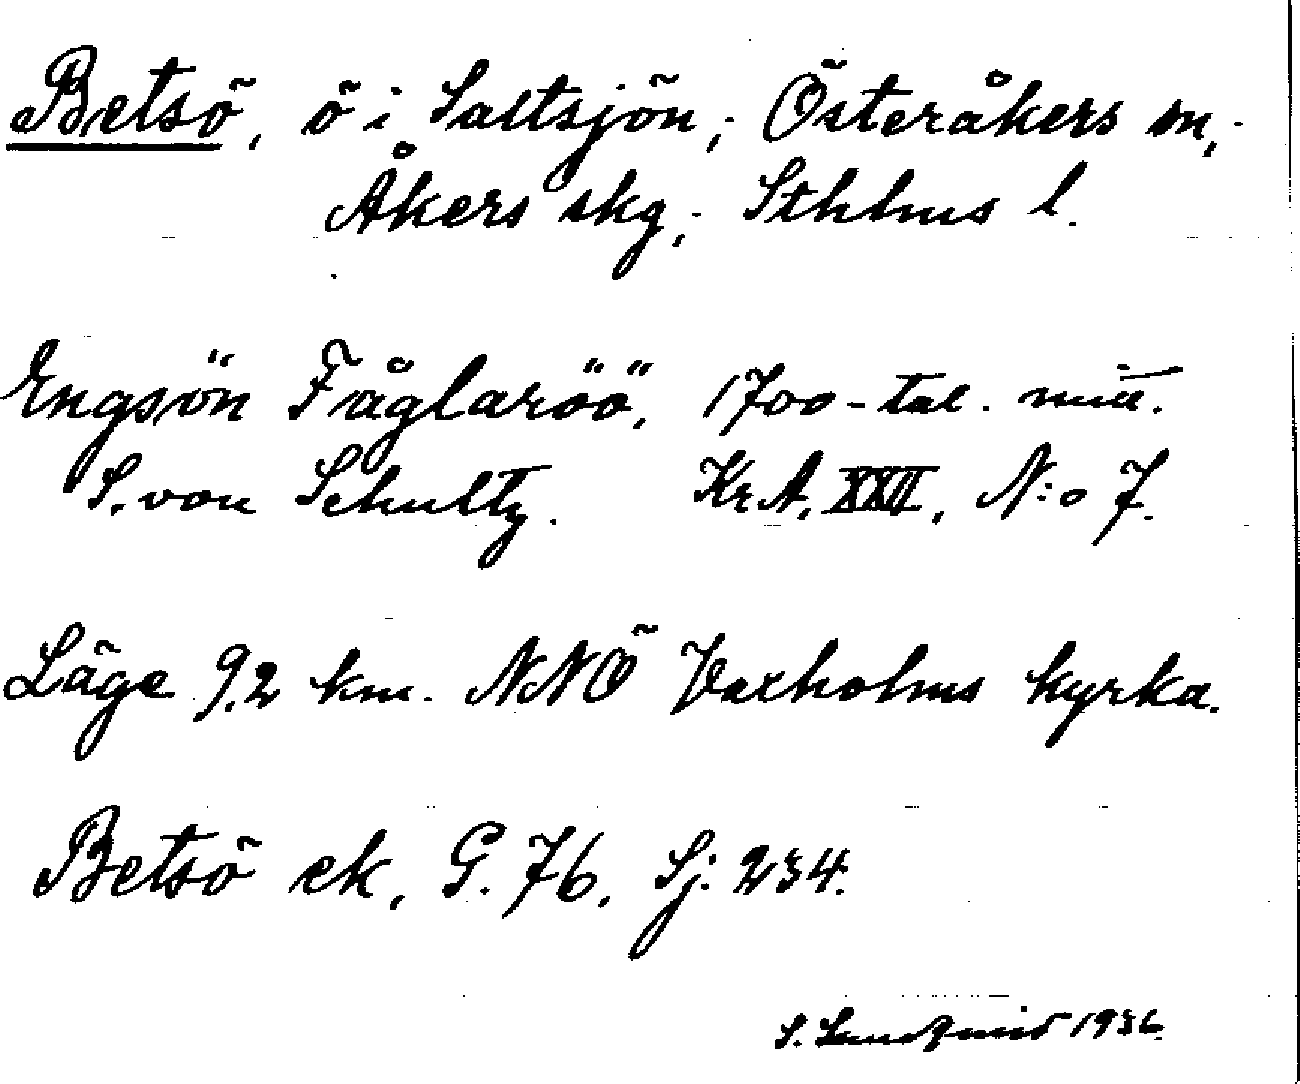 Betsö, ö i Saltsjön,; Österåkers sn,-
Åkers skg,- Sthlms l.
Engsön Fåglaröö, 1700-tal. mitt.
S. von Schultz. Kr.A. XXII, N:o 7.
Läge 9,2 km. NNÖ Vaxholms kyrka.
Betsö ek, G. 76, Sj. 234.
S. Lundqvist 1936.